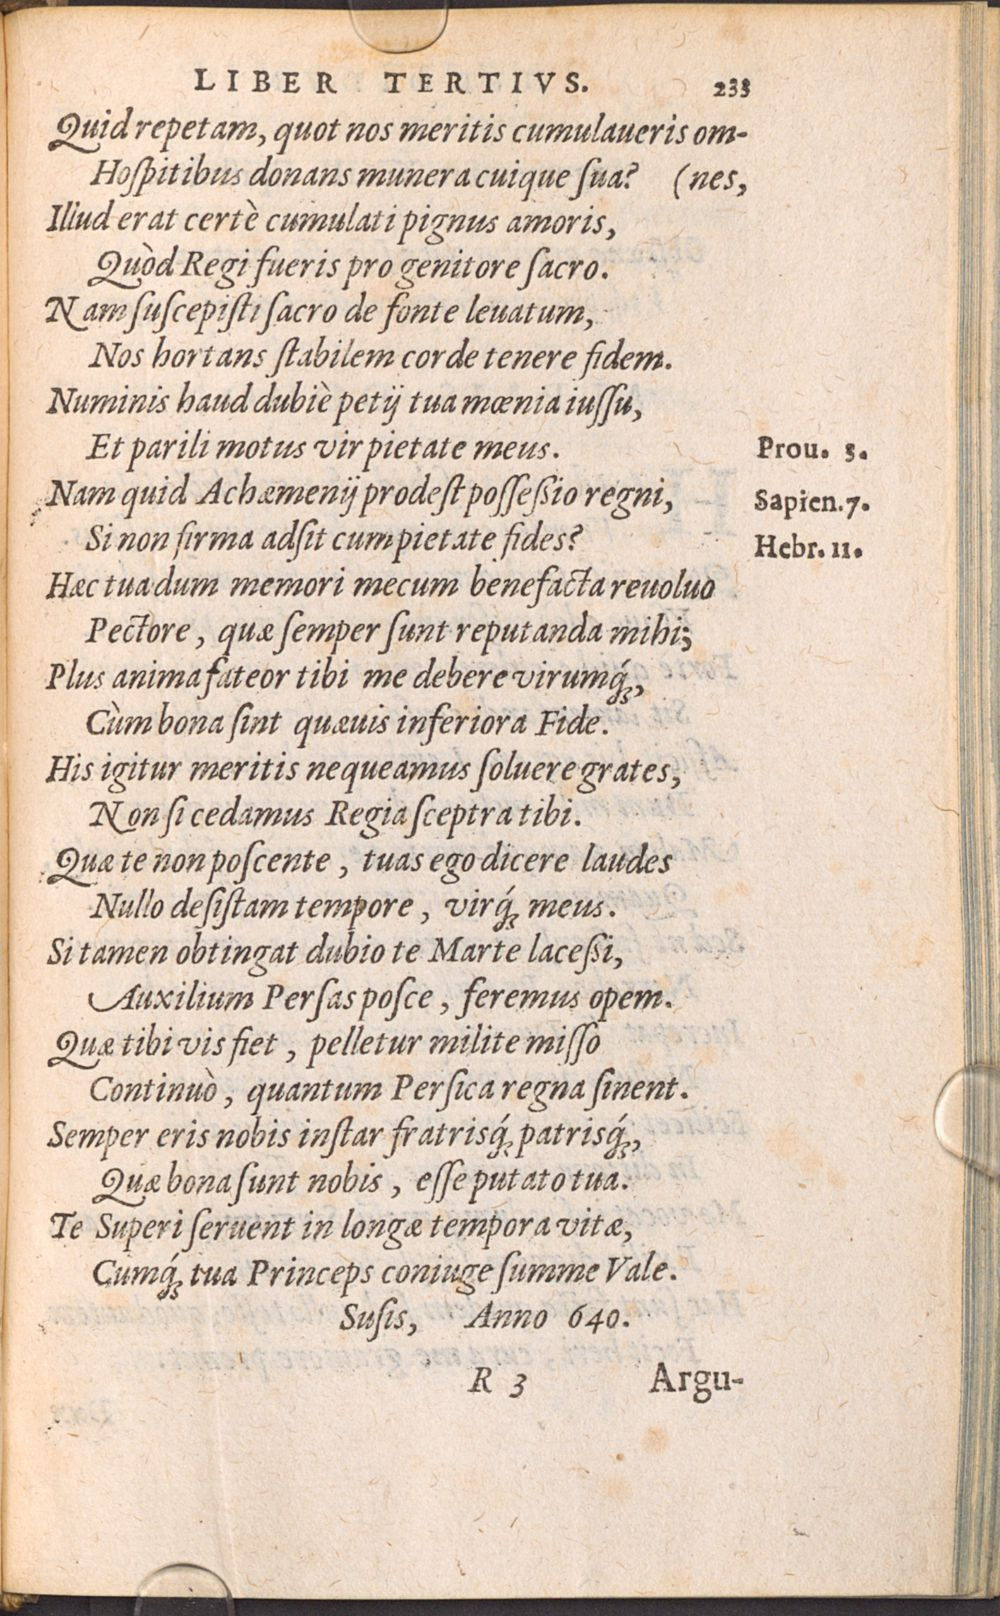 LIBER TERTIVS. 233
Quid repetam, quot nos meritis cumulaueris om-
Hoſpitibus donans munera cuique ſua? (nes,
Illud erat certè cumulati pignus amoris,
Quòd Regi fueris pro genitore ſacro.
Nam ſuſcepiſti ſacro de fonte leuatum,
Nos hortans ſtabilem corde tenere fidem.
Numinis haud dubiè petij tua mœnia iuſſu,
Et parili motus vir pietate meus.
Prou. 3.
Nam quid Achæmenij prodeſt poſſeßio regni,
Sapien. 7.
Si non firma adſit cum pietate fides?
Hebr. 11.
Hæc tua dum memori mecum benefacta reuoluo
Pectore, quæ ſemper ſunt reputanda mihi;
Plus anima fateor tibi me debere virumq́;,
Cùm bona ſint quæuis inferiora Fide.
His igitur meritis nequeamus ſoluere grates,
Non ſi cedamus Regia ſceptra tibi.
Quæ te non poſcente, tuas ego dicere laudes
Nullo deſiſtam tempore, virq́; meus.
Si tamen obtingat dubio te Marte laceßi,
Auxilium Perſas poſce, feremus opem.
Quæ tibi vis fiet, pelletur milite miſſo
Continuò, quantum Perſica regna ſinent.
Semper eris nobis inſtar fratrisq́; patrisq́;,
Quæ bona ſunt nobis, eſſe putato tua.
Te Superi ſeruent in longæ tempora vitæ,
Cumq́; tua Princeps coniuge ſumme Vale.
Suſis, Anno 640.
R 3 Argu-